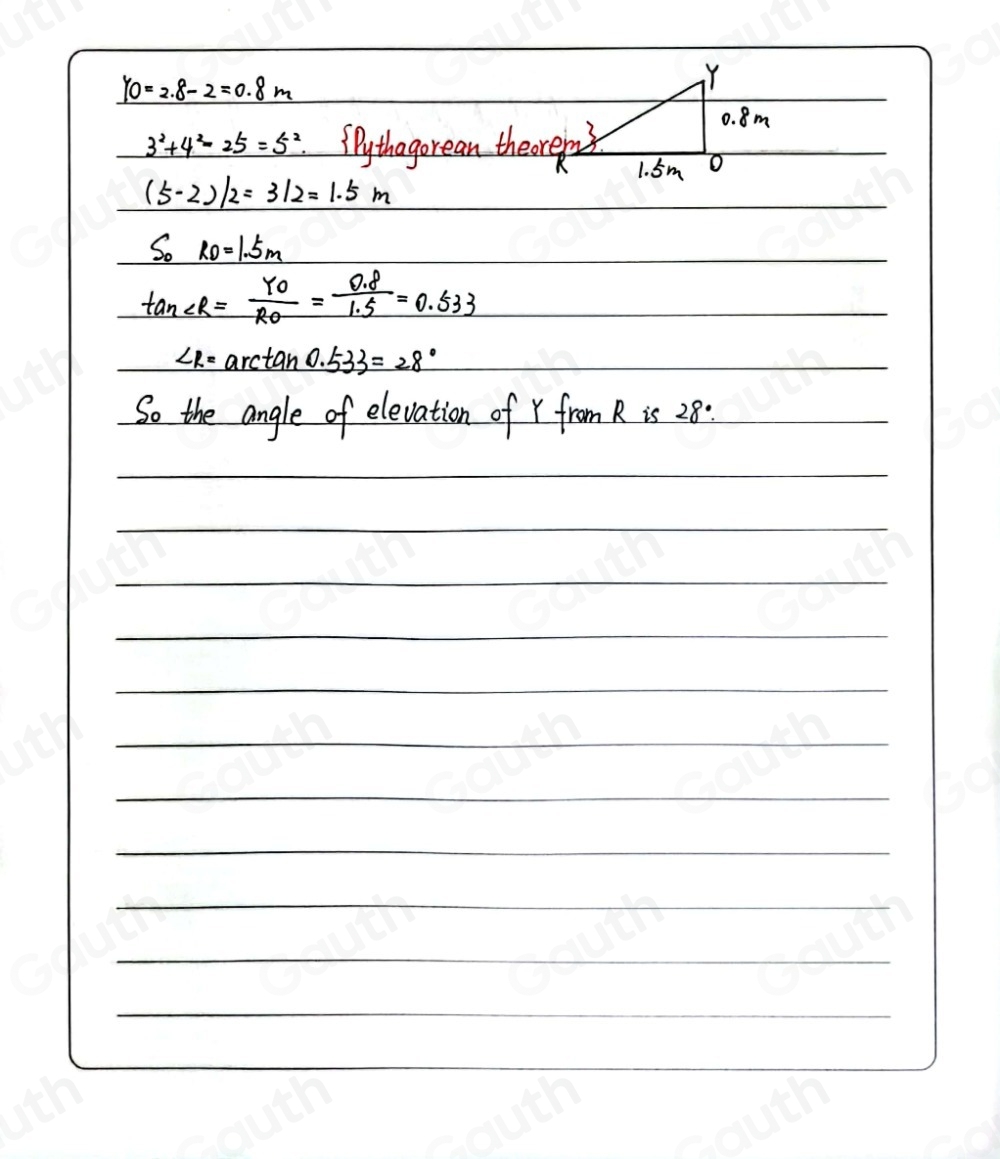 YO=2.8-2=0.8 m
3²+4²=25=5². {Pythagorean theorem}.
(5-2)/2=3/2=1.5 m
So RO=1.5m
tan∠R= YO/RO = 0.8/1.5 =0.533
∠R=arctan 0.533=28°
So the angle of elevation of Y from R is 28°.
Y
0.8m
R
1.5m
O
Gauth